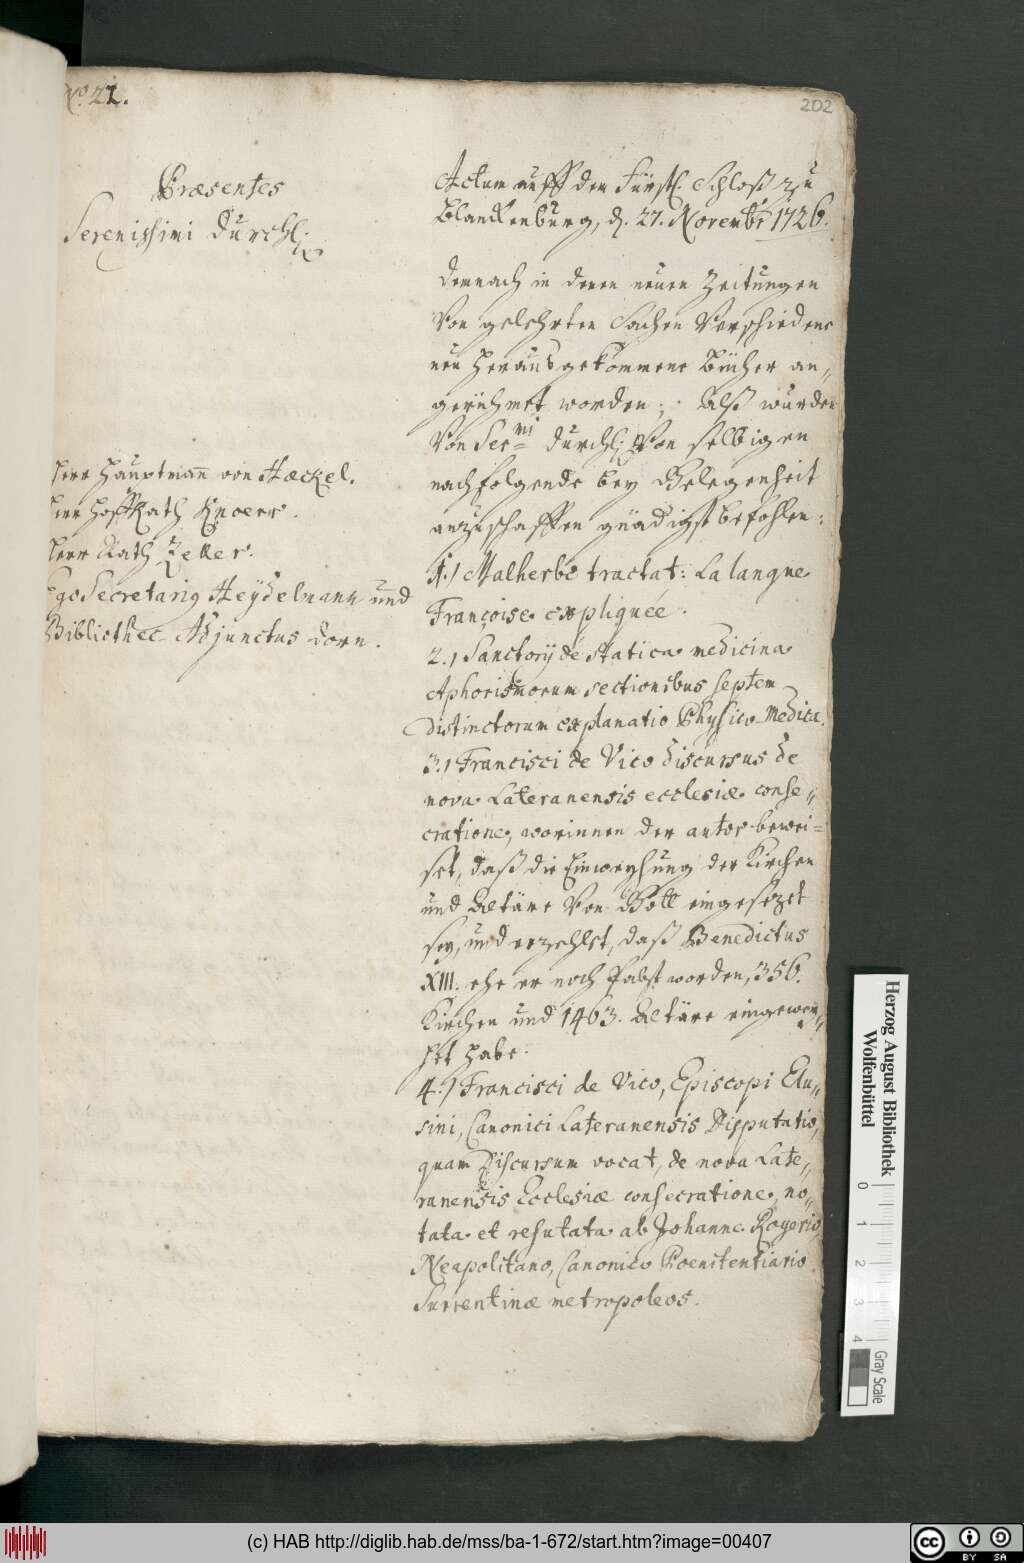 No. 21.
202
Præsentes
Serenissimi Durchl.
Herr Hauptmann von Hæckel.
Herr HoffRath Knoerr.
Herr Rath Zeller.
Ego Secretarius Heÿdelmann und
Bibliothec. Adjunctus Dorn.
Actum auff dem Fürstl. Schloß zu
Blanckenburg, d. 27. Novembr 1726.
Demnach in denen neuen Zeitungen
Von gelehrten Sachen Verschiedene
neu herausgekommene Bücher an„
gerühmet worden; Alß wurden
Von Ser.mi Durchl. Von selbigen
nachfolgende bey Gelegenheit
anzuschaffen gnädigst befohlen:
1.) Malherbe tractat: La langue
Françoise expliquée.
2.) Sanctorij de statica medicina
Aphorismorum sectionibus septem
distinctorum explanatio Physico Medica.
3.) Francisci de Vico discursus de
nova Lateranensis ecclesiæ conse„
cratione, worinnen der autor bewei=
set, daß die Einweyhung der Kirchen
und Altäre Von Gott eingesezet
sey, und erzehlet, daß Benedictus
XIII. ehe er noch Pabst worden, 356.
Kirchen und 1463. Altäre eingewey„
het habe.
4.) Francisci de Vico, Episcopi Elu„
sini, Canonici Lateranensis Disputatio,
quam Discursum vocat, de nova Late„
ranensis Ecclesiæ consecratione, no„
tata et refutata ab Johanne Rogerio
Neapolitano, Canonico Poenitentiario
Surrentinæ metropoleos.
Herzog August Bibliothek
Wolfenbüttel
0 1 2 3 4
Gray Scale
(c) HAB http://diglib.hab.de/mss/ba-1-672/start.htm?image=00407
cc BY SA